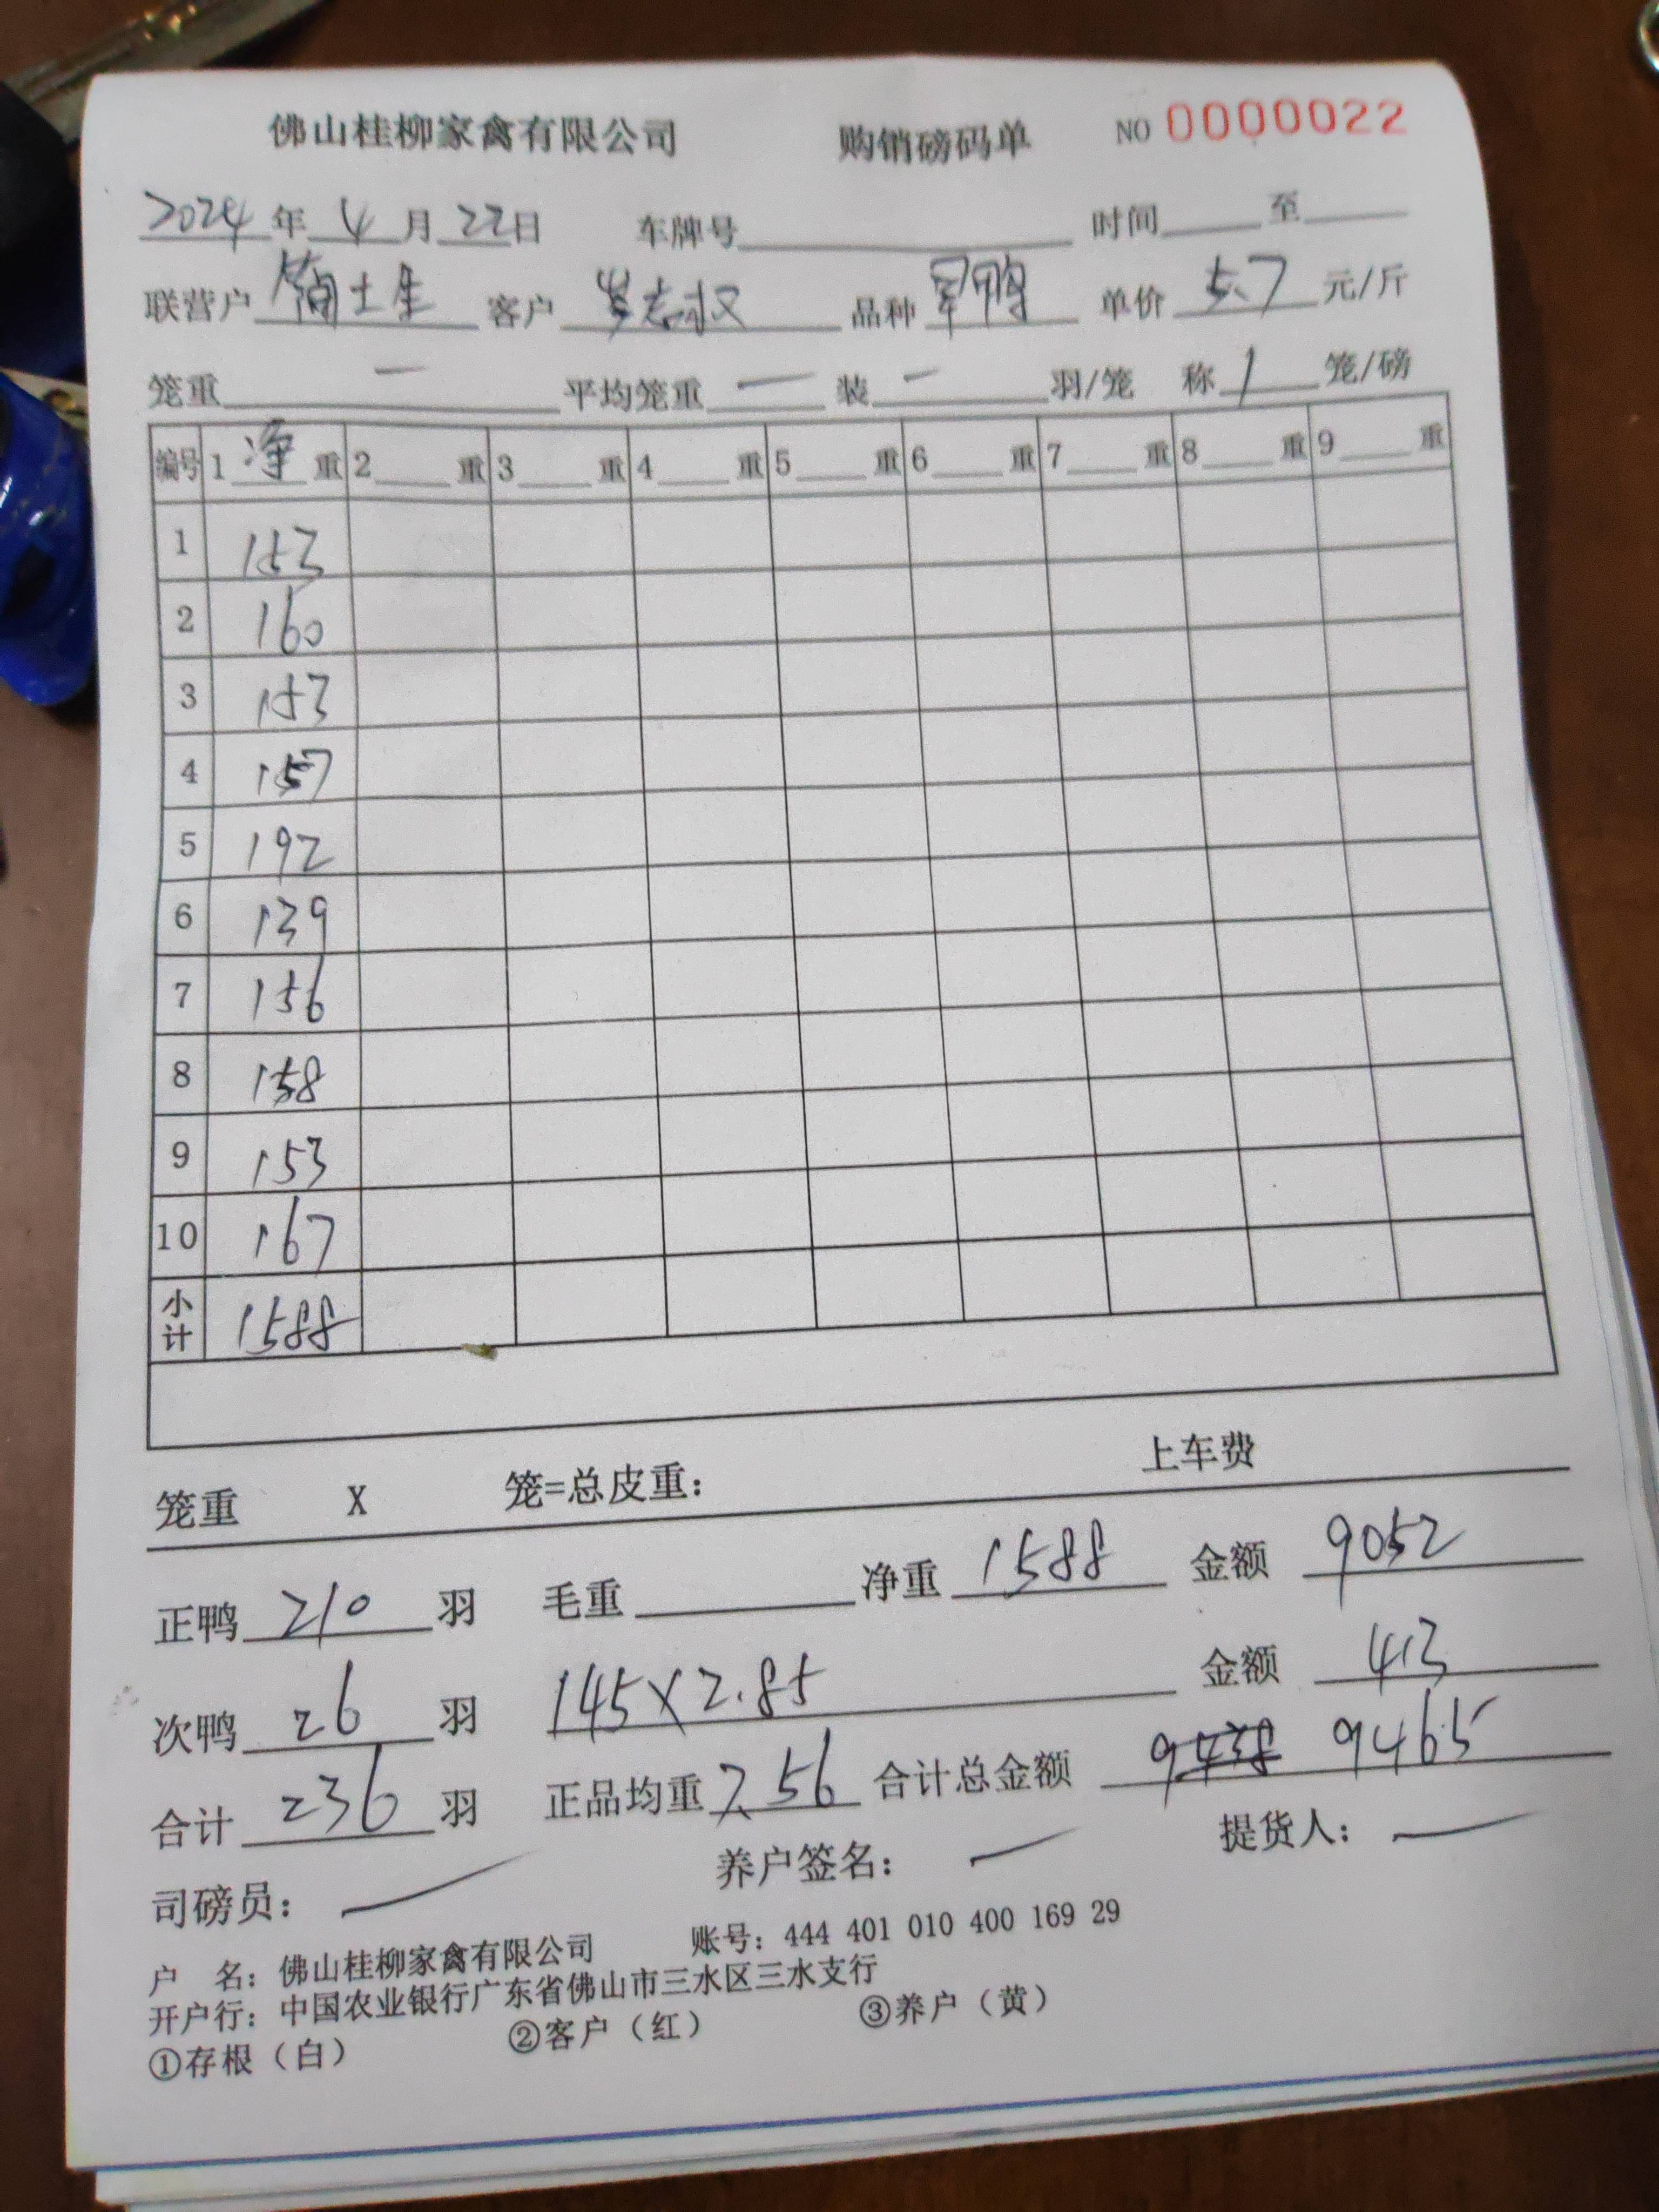 佛山桂柳家禽有限公司 购销磅码单 NO 0000022
2024 年 4 月 22 日 车牌号 时间 至
联营户 简士生 客户 罗志权 品种 军鸭 单价 5.7 元/斤
笼重 一 平均笼重 一 装 一 羽/笼 称 1 笼/磅
编号 1 净 重 2 重 3 重 4 重 5 重 6 重 7 重 8 重 9 重
1 153
2 160
3 153
4 157
5 192
6 139
7 156
8 158
9 153
10 167
小计 1588
笼重 X 笼=总皮重: 上车费
正鸭 210 羽 毛重 净重 1588 金额 9052
次鸭 26 羽 145×2.85 金额 413
合计 236 羽 正品均重 7.56 合计总金额 9465
司磅员: 养户签名: 提货人:
户 名: 佛山桂柳家禽有限公司 账号: 444 401 010 400 169 29
开户行: 中国农业银行广东省佛山市三水区三水支行
①存根（白） ②客户（红） ③养户（黄）